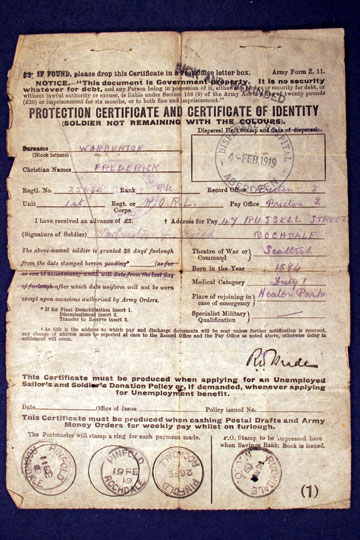 NOT AMENDED
IF FOUND, please drop this Certificate in a Post Office letter box. Army Form Z. 11.
NOTICE.—"This document is Government property. It is no security
whatever for debt, and any Person being in possession of it, either as a pledge or security for debt, or
without lawful authority or excuse, is liable under Section 156 (9) of the Army Act to a fine of twenty pounds
(£20) or imprisonment for six months, or to both fine and imprisonment."
PROTECTION CERTIFICATE AND CERTIFICATE OF IDENTITY
(SOLDIER NOT REMAINING WITH THE COLOURS).
Dispersal Unit stamp and date of dispersal
Surname WARBURTON
(Block letters)
Christian Names FREDERICK
FEB 1919
Regtl. No. Rank Record Office Preston 2
Unit 1st Regt. or Corps Pay Office Preston 2
I have received an advance of £2. † Address for Pay 47 RUSSELL STREET
(Signature of Soldier) ROCHDALE
The above-named soldier is granted 28 days' furlough
from the date stamped hereon pending* (as far
as can be ascertained) which will date from the last day
of furlough after which date uniform will not be worn
except upon occasions authorised by Army Orders.
Theatre of War or Command Scottish
Born in the Year 1884
Medical Category
Place of rejoining in case of emergency Heaton Park
Specialist Military Qualification
* If for Final Demobilization insert 1.
Disembodiment insert 2.
Transfer to Reserve insert 3.
† As this is the address to which pay and discharge documents will be sent unless further notification is received,
any change of address must be reported at once to the Record Office and the Pay Office as noted above, otherwise delay in
settlement will occur.
This Certificate must be produced when applying for an Unemployed
Sailor's and Soldier's Donation Policy or, if demanded, whenever applying
for Unemployment benefit.
Date Office of Issue Policy issued No.
This Certificate must be produced when cashing Postal Drafts and Army
Money Orders for weekly pay whilst on furlough.
The Postmaster will stamp a ring for each payment made.
P.O. Stamp to be impressed here
when Savings Bank Book is issued.
PINFOLD
ROCHDALE
PINFOLD
19 FE
19
ROCHDALE
PINFOLD
ROCHDALE
(1)